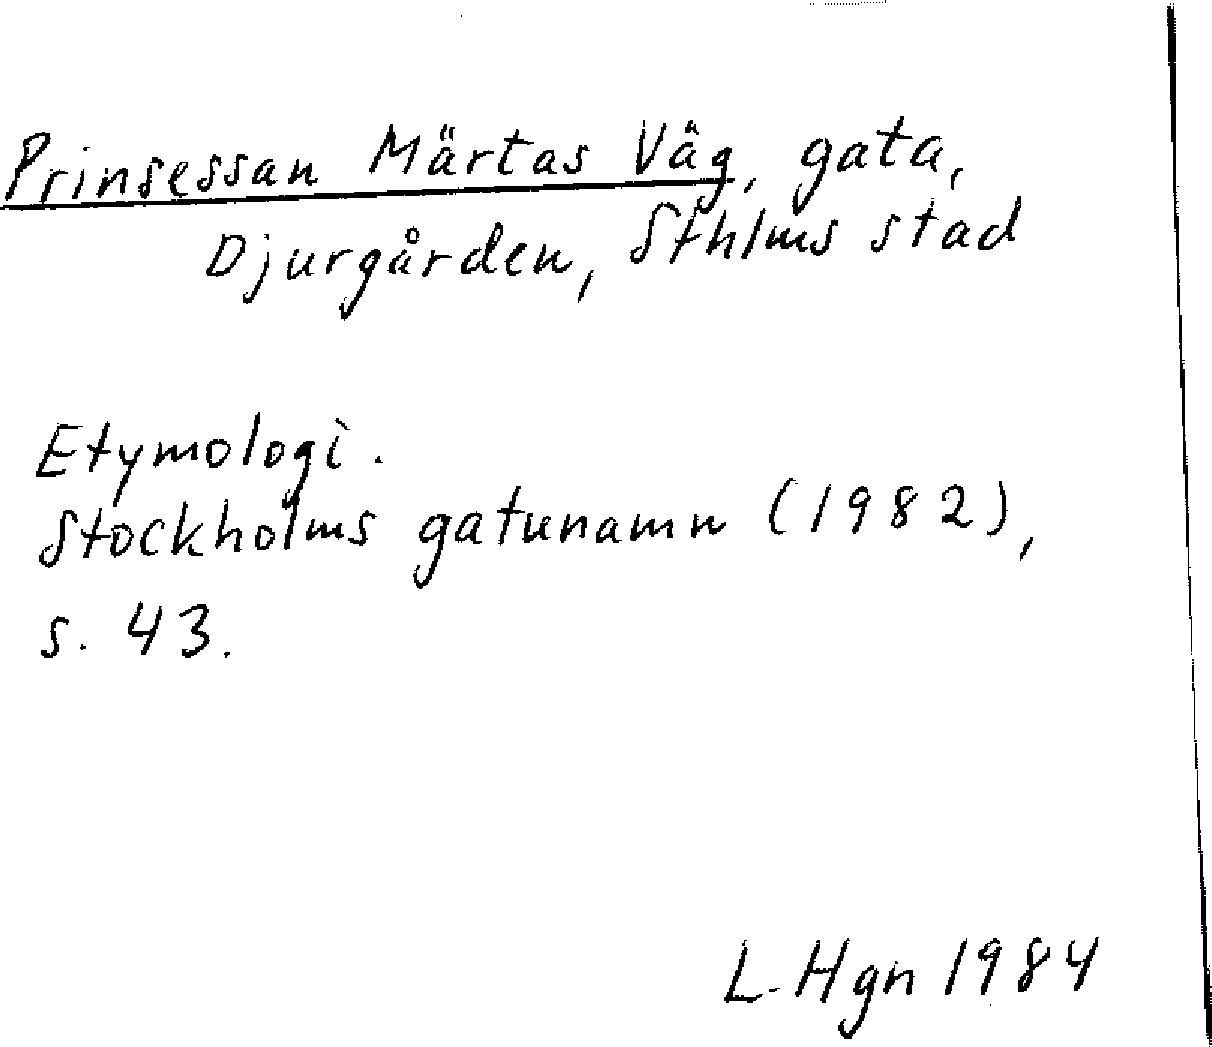 Prinsessan Märtas Väg, gata,
Djurgården, Sthlms stad
Etymologi.
Stockholms gatunamn (1982),
s. 43.
L. Hgn 1984